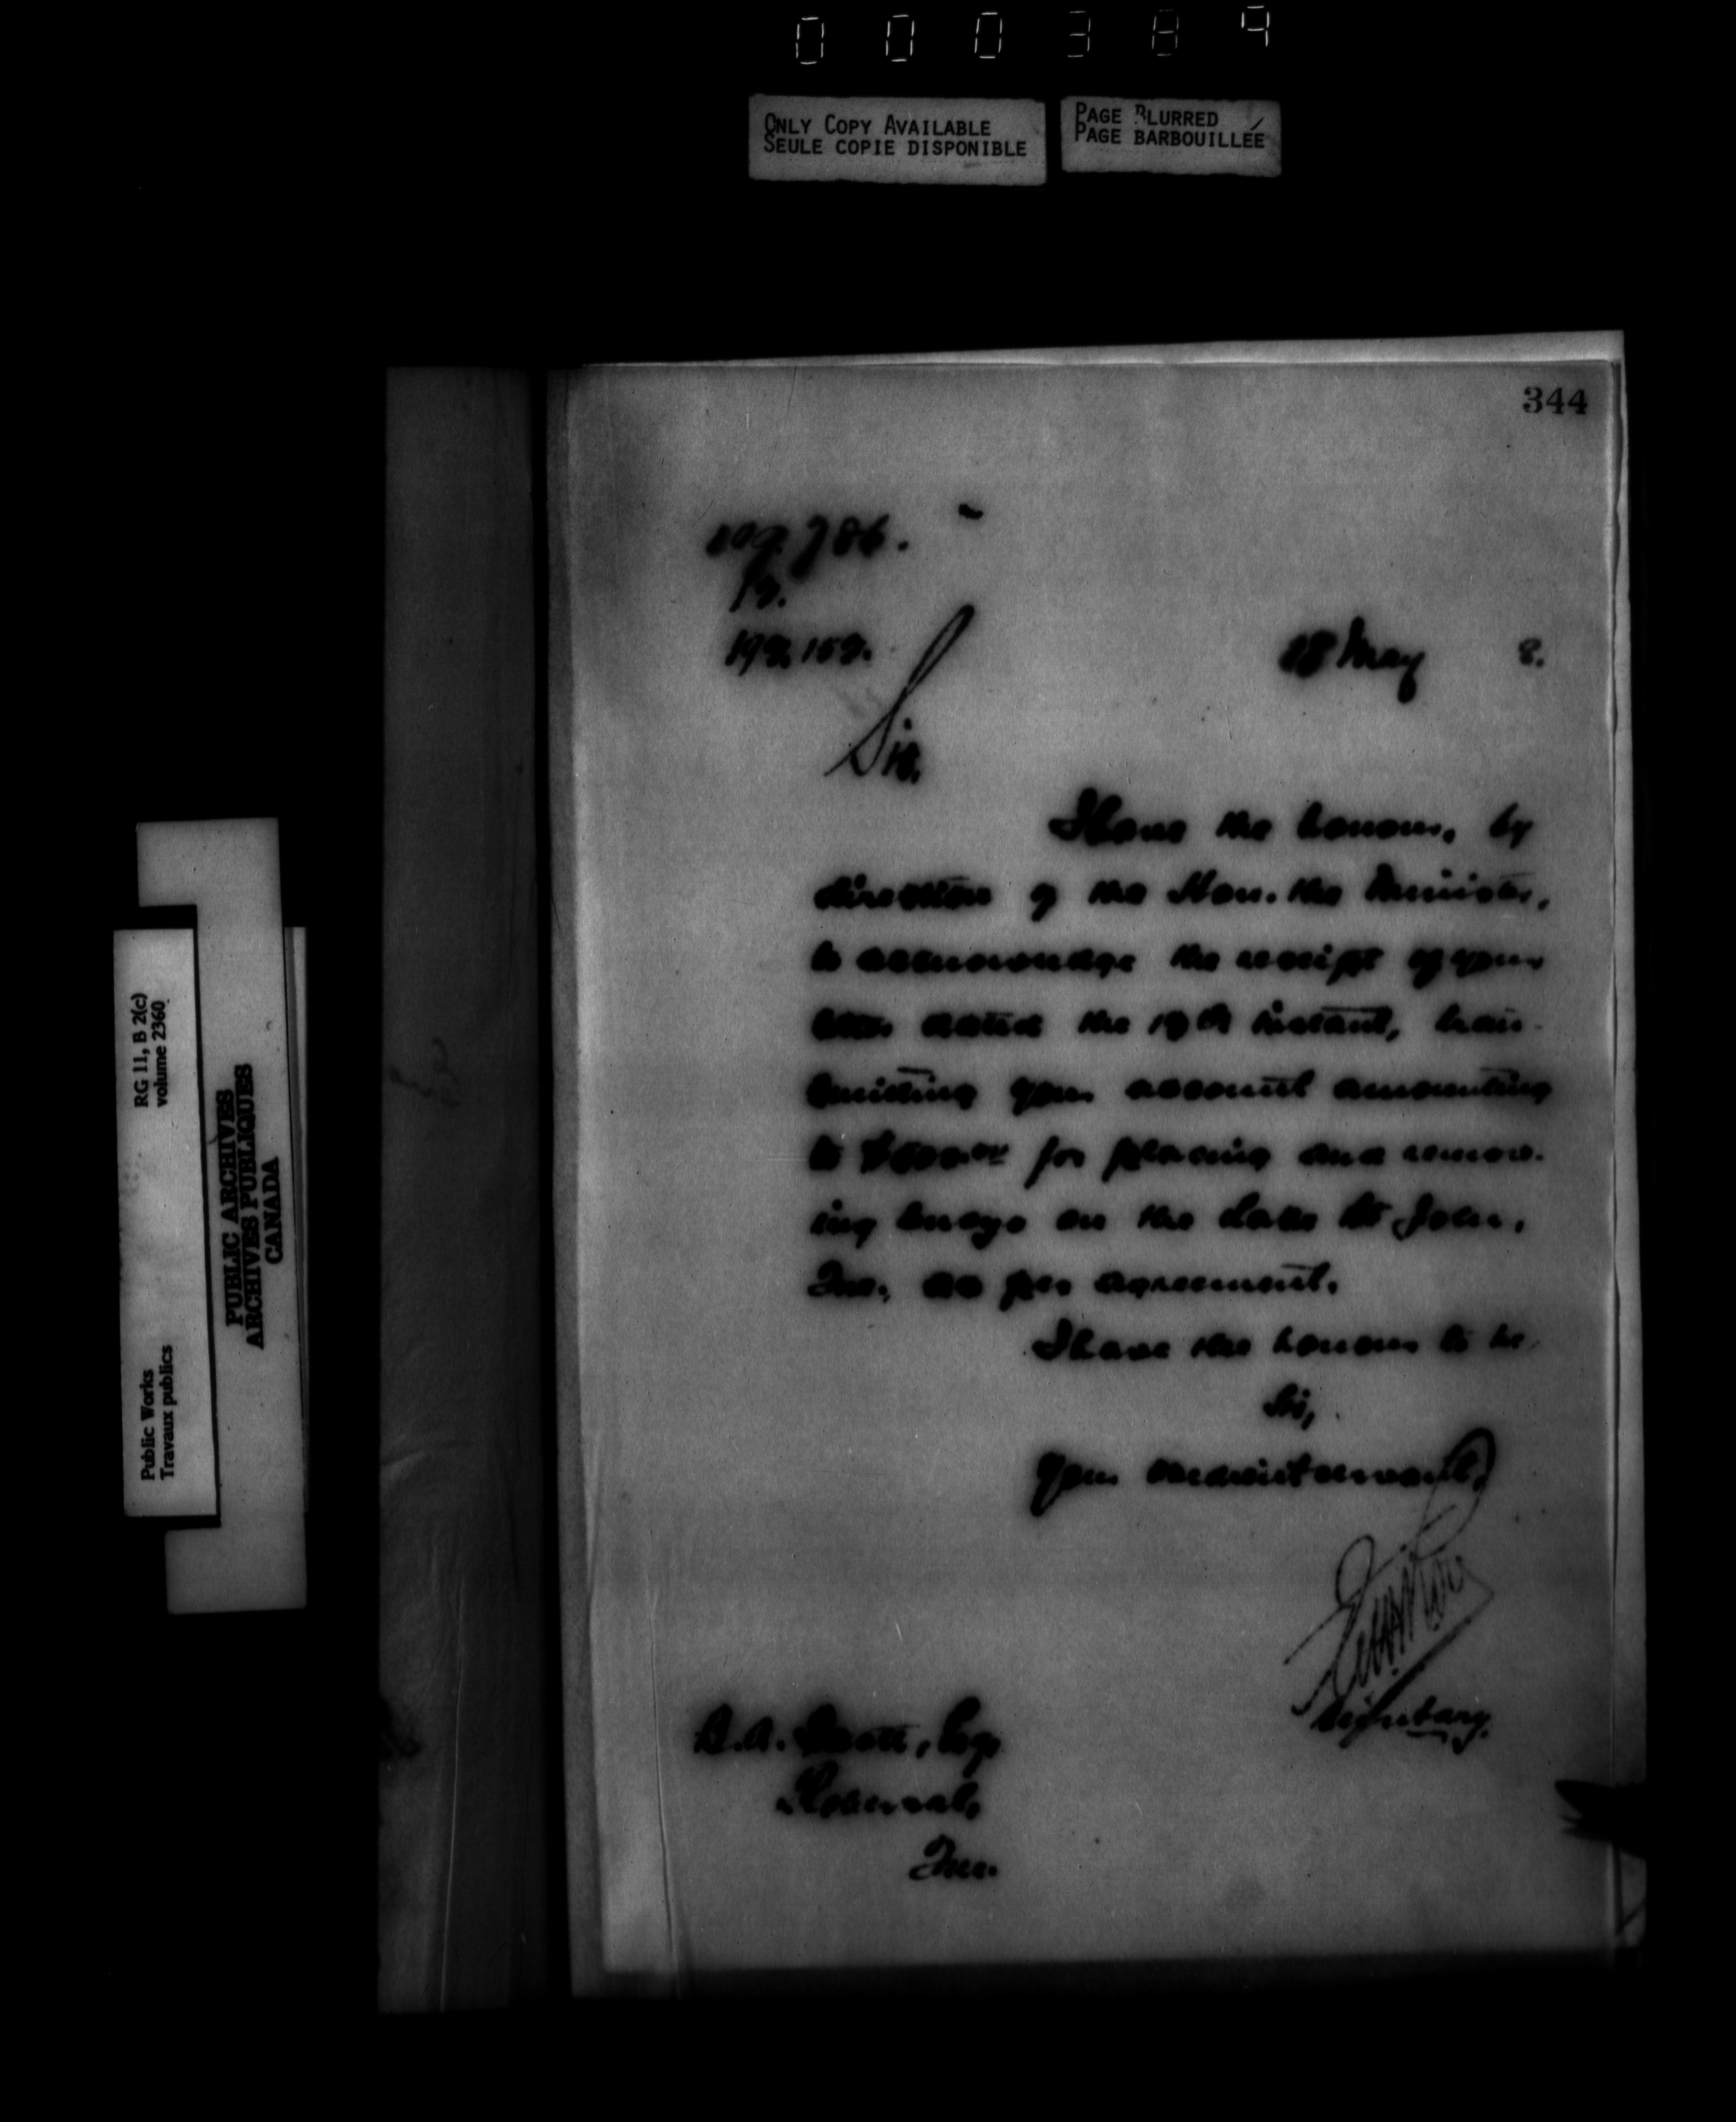 000389
ONLY COPY AVAILABLE
SEULE COPIE DISPONIBLE
PAGE BLURRED
PAGE BARBOUILLÉE
344
18 May 8.
Sir,
I have the honour, by
direction of the Hon. the Minister,
to acknowledge the receipt of your
letter dated the instant, trans-
mitting your account amounting
to for placing and remov-
ing buoys on the Lake St John,
Que., as per agreement.
I have the honour to be
Sir,
Your obedient servant,
Secretary.
B.A. Scott, Esq,
Roberval,
Que.
RG 11, B 2(c)
volume 2360
Public Works
Travaux publics
PUBLIC ARCHIVES
ARCHIVES PUBLIQUES
CANADA